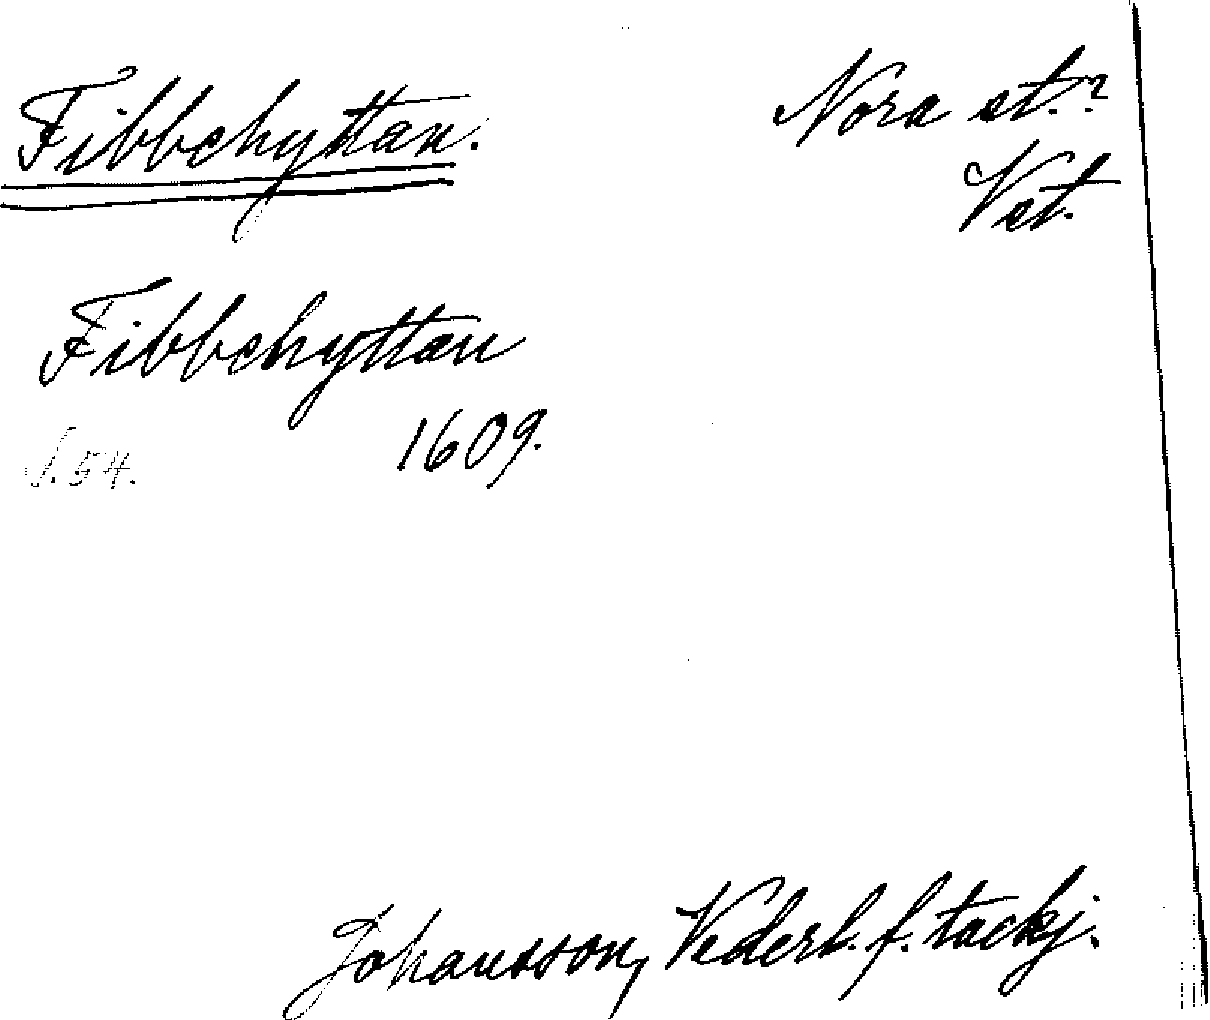 Fibbehyttan.
Nora st.?
Vst.
Fibbehyttan
1609.
S. 54.
Johansson, Vederl. f. tackj.